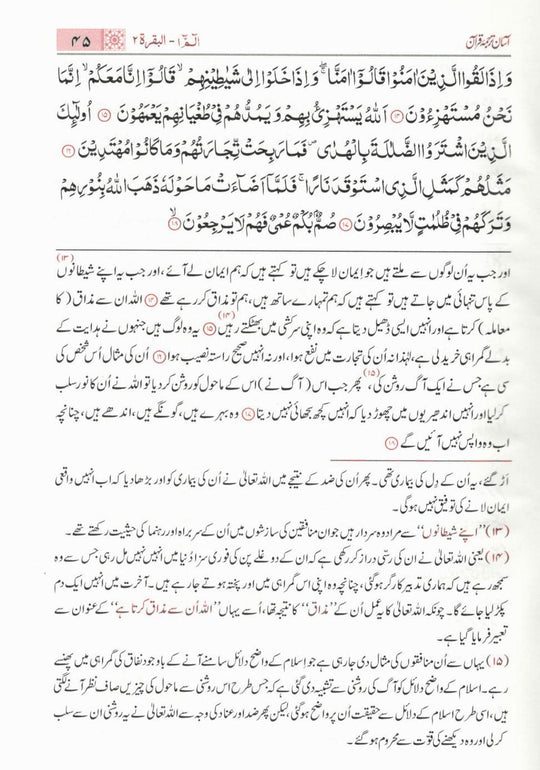 آسان ترجمۂ قرآن
الٓمّٓ ۱ - البقرة ۲
۴۵
وَ اِذَا لَقُوا الَّذِيْنَ اٰمَنُوْا قَالُوْۤا اٰمَنَّا ۚۖ وَ اِذَا خَلَوْا اِلٰى شَيٰطِيْنِهِمْ ۙ قَالُوْۤا اِنَّا مَعَكُمْ ۙ اِنَّمَا
نَحْنُ مُسْتَهْزِءُوْنَ ⑭ اَللّٰهُ يَسْتَهْزِئُ بِهِمْ وَ يَمُدُّهُمْ فِيْ طُغْيَانِهِمْ يَعْمَهُوْنَ ⑮ اُولٰٓئِكَ
الَّذِيْنَ اشْتَرَوُا الضَّلٰلَةَ بِالْهُدٰى ۪ فَمَا رَبِحَتْ تِّجَارَتُهُمْ وَ مَا كَانُوْا مُهْتَدِيْنَ ⑯
مَثَلُهُمْ كَمَثَلِ الَّذِي اسْتَوْقَدَ نَارًا ۚ فَلَمَّاۤ اَضَآءَتْ مَا حَوْلَهٗ ذَهَبَ اللّٰهُ بِنُوْرِهِمْ
وَ تَرَكَهُمْ فِيْ ظُلُمٰتٍ لَّا يُبْصِرُوْنَ ⑰ صُمٌّۢ بُكْمٌ عُمْيٌ فَهُمْ لَا يَرْجِعُوْنَ ۙ⑱
اور جب یہ اُن لوگوں سے ملتے ہیں جو ایمان لاچکے ہیں تو کہتے ہیں کہ ہم ایمان لے آئے، اور جب یہ اپنے شیطانوں (۱۳)
کے پاس تنہائی میں جاتے ہیں تو کہتے ہیں کہ ہم تمہارے ساتھ ہیں، ہم تو مذاق کر رہے تھے ⑭ اللہ ان سے مذاق (کا
معاملہ) کرتا ہے اور انہیں ایسی ڈھیل دیتا ہے کہ وہ اپنی سرکشی میں بھٹکتے رہیں (۱۴) ⑮ یہ وہ لوگ ہیں جنہوں نے ہدایت کے
بدلے گمراہی خرید لی ہے، لہٰذا نہ اُن کی تجارت میں نفع ہوا، اور نہ انہیں صحیح راستہ نصیب ہوا ⑯ اُن کی مثال اُس شخص کی
سی ہے جس نے ایک آگ روشن کی، (۱۵) پھر جب اس (آگ نے) اس کے ماحول کو روشن کردیا تو اللہ نے اُن کا نور سلب
کرلیا اور انہیں اندھیریوں میں چھوڑ دیا کہ انہیں کچھ سجھائی نہیں دیتا ⑰ وہ بہرے ہیں، گونگے ہیں، اندھے ہیں، چنانچہ
اب وہ واپس نہیں آئیں گے ⑱
اَڑ گئے، یہ اُن کے دِل کی بیماری تھی۔ پھر اُن کی ضد کے نتیجے میں اللہ تعالیٰ نے اُن کی بیماری کو اور بڑھادیا کہ اب انہیں واقعی
ایمان لانے کی توفیق نہیں ہوگی۔
(۱۳) ”اپنے شیطانوں“ سے مراد وہ سردار ہیں جو ان منافقین کی سازشوں میں اُن کے سربراہ اور رہنما کی حیثیت رکھتے تھے۔
(۱۴) یعنی اللہ تعالیٰ نے ان کی رسّی دراز کر رکھی ہے کہ ان کے دوغلے پن کی فوری سزا دُنیا میں انہیں نہیں مل رہی جس سے وہ
سمجھ رہے ہیں کہ ہماری تدبیر کارگر ہوگئی، چنانچہ وہ اپنی اس گمراہی میں اور پختہ ہوتے جا رہے ہیں۔ آخرت میں انہیں ایک دم
پکڑ لیا جائے گا۔ چونکہ اللہ تعالیٰ کا یہ عمل اُن کے ”مذاق“ کا نتیجہ تھا، اُسے یہاں ”اللہ اُن سے مذاق کرتا ہے“ کے عنوان سے
تعبیر فرمایا گیا ہے۔
(۱۵) یہاں سے اُن منافقوں کی مثال دی جارہی ہے جو اِسلام کے واضح دلائل سامنے آنے کے باوجود نفاق کی گمراہی میں پھنسے
رہے۔ اسلام کے واضح دلائل کو آگ کی روشنی سے تشبیہ دی گئی ہے کہ جس طرح اس روشنی سے ماحول کی چیزیں صاف نظر آنے لگتی
ہیں، اسی طرح اسلام کے دلائل سے حقیقت اُن پر واضح ہوگئی، لیکن پھر ضد اور عناد کی وجہ سے اللہ تعالیٰ نے یہ روشنی ان سے سلب
کرلی اور وہ دیکھنے کی قوّت سے محروم ہوگئے۔